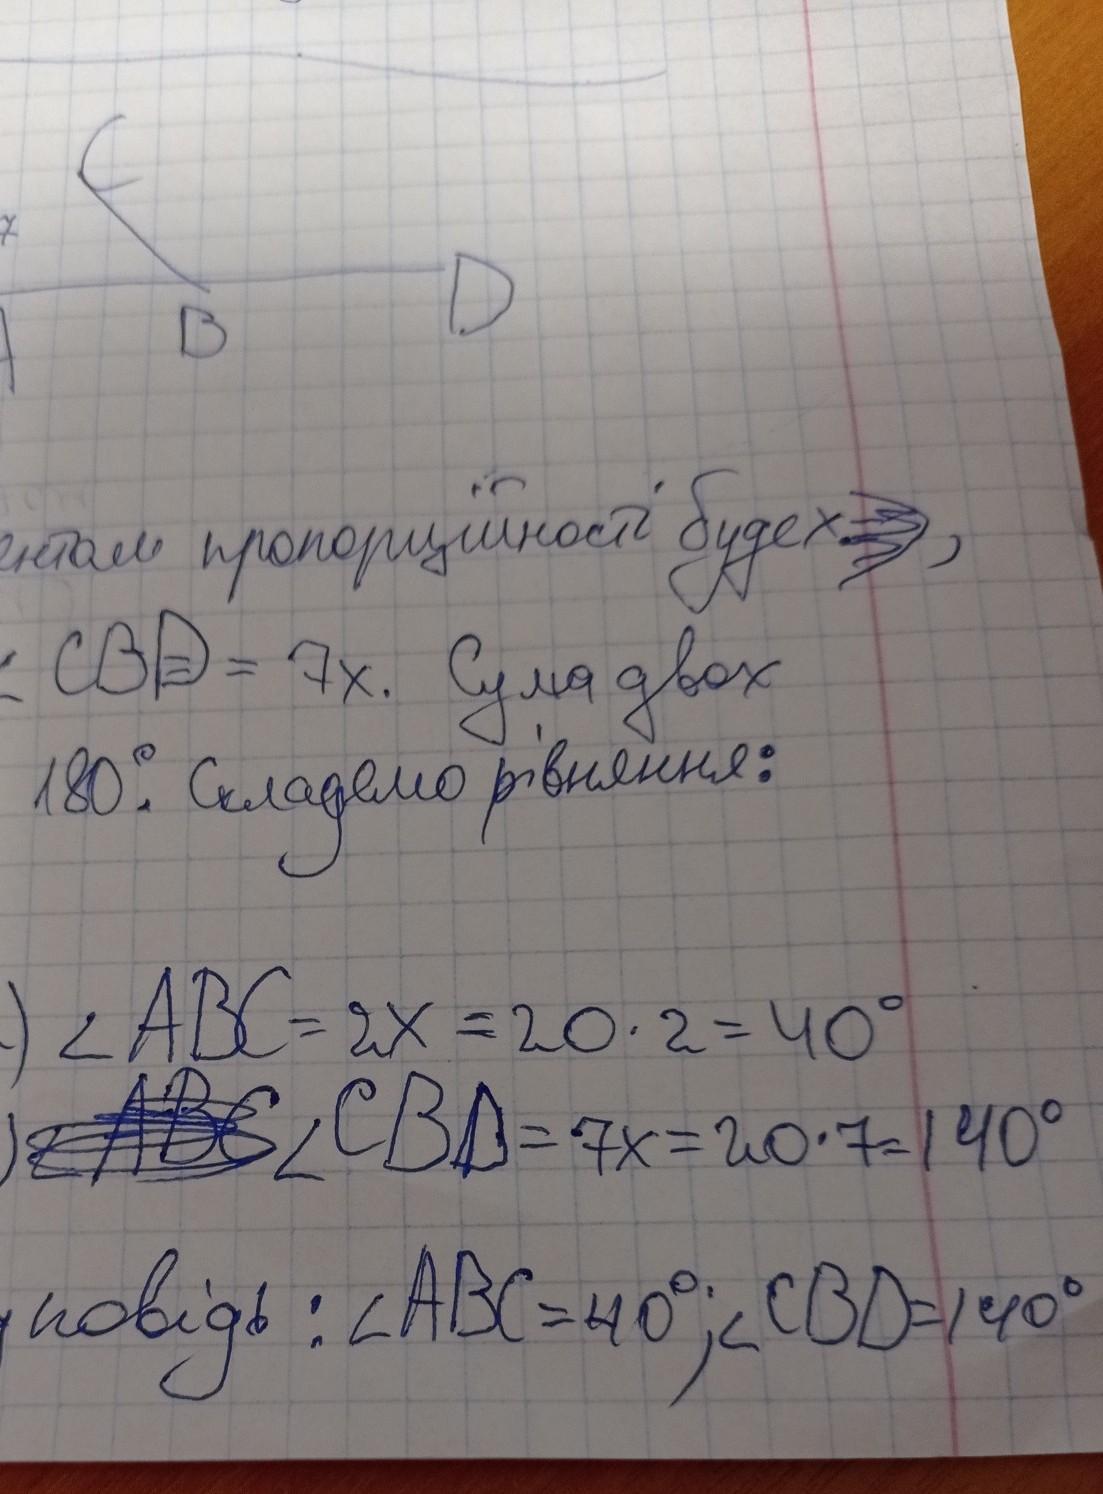 C
7
A B D
ентом пропорційності буде x,
< CBD = 7x. Сума двох
180°. Складемо рівняння:
) ∠ ABC = 2x = 20 · 2 = 40°
) ∠ CBD = 7x = 20 · 7 = 140°
повідь : ∠ ABC = 40°; ∠ CBD = 140°